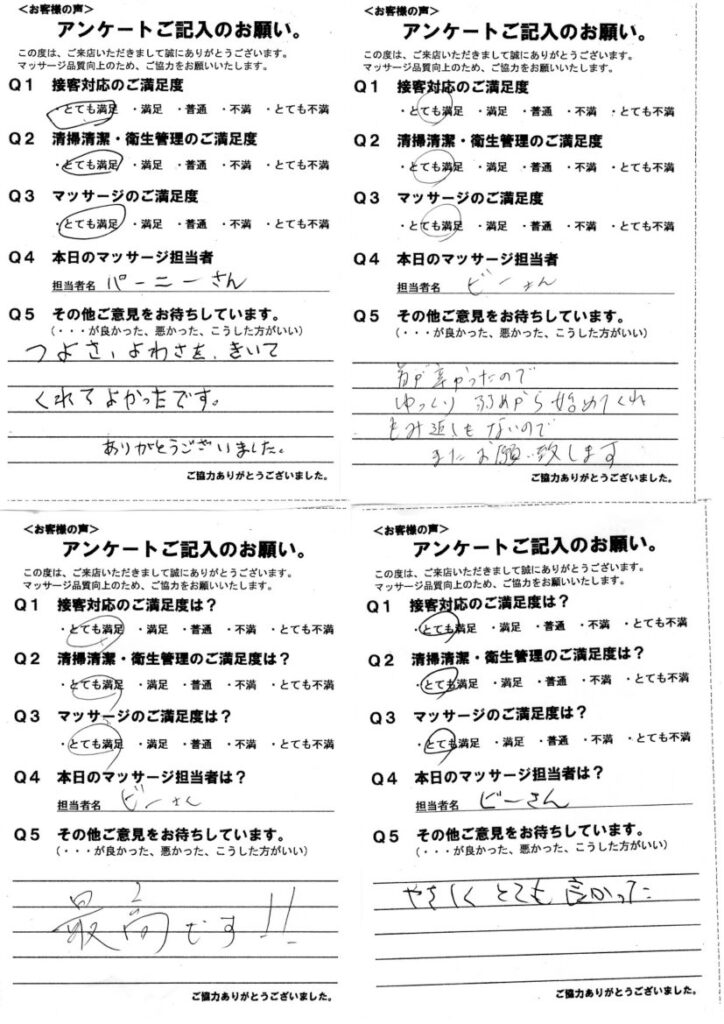 <お客様の声>
アンケートご記入のお願い。
この度は、ご来店いただきまして誠にありがとうございます。
マッサージ品質向上のため、ご協力をお願いいたします。
Q1 接客対応のご満足度
・とても満足 ・満足 ・普通 ・不満 ・とても不満
Q2 清掃清潔・衛生管理のご満足度
・とても満足 ・満足 ・普通 ・不満 ・とても不満
Q3 マッサージのご満足度
・とても満足 ・満足 ・普通 ・不満 ・とても不満
Q4 本日のマッサージ担当者
担当者名 パーニーさん
Q5 その他ご意見をお待ちしています。
(・・・が良かった、悪かった、こうした方がいい)
つよさ、よわさを、きいて
くれてよかったです。
ありがとうございました。
ご協力ありがとうございました。
<お客様の声>
アンケートご記入のお願い。
この度は、ご来店いただきまして誠にありがとうございます。
マッサージ品質向上のため、ご協力をお願いいたします。
Q1 接客対応のご満足度
・とても満足 ・満足 ・普通 ・不満 ・とても不満
Q2 清掃清潔・衛生管理のご満足度
・とても満足 ・満足 ・普通 ・不満 ・とても不満
Q3 マッサージのご満足度
・とても満足 ・満足 ・普通 ・不満 ・とても不満
Q4 本日のマッサージ担当者
担当者名 ビーさん
Q5 その他ご意見をお待ちしています。
(・・・が良かった、悪かった、こうした方がいい)
が辛かったので
ゆっくり 弱めから始めてくれ
もみ返しもないので
またお願い致します
ご協力ありがとうございました。
<お客様の声>
アンケートご記入のお願い。
この度は、ご来店いただきまして誠にありがとうございます。
マッサージ品質向上のため、ご協力をお願いいたします。
Q1 接客対応のご満足度は？
・とても満足 ・満足 ・普通 ・不満 ・とても不満
Q2 清掃清潔・衛生管理のご満足度は？
・とても満足 ・満足 ・普通 ・不満 ・とても不満
Q3 マッサージのご満足度は？
・とても満足 ・満足 ・普通 ・不満 ・とても不満
Q4 本日のマッサージ担当者は？
担当者名 ビーさん
Q5 その他ご意見をお待ちしています。
(・・・が良かった、悪かった、こうした方がいい)
最高です!!
ご協力ありがとうございました。
<お客様の声>
アンケートご記入のお願い。
この度は、ご来店いただきまして誠にありがとうございます。
マッサージ品質向上のため、ご協力をお願いいたします。
Q1 接客対応のご満足度は？
・とても満足 ・満足 ・普通 ・不満 ・とても不満
Q2 清掃清潔・衛生管理のご満足度は？
・とても満足 ・満足 ・普通 ・不満 ・とても不満
Q3 マッサージのご満足度は？
・とても満足 ・満足 ・普通 ・不満 ・とても不満
Q4 本日のマッサージ担当者は？
担当者名 ビーさん
Q5 その他ご意見をお待ちしています。
(・・・が良かった、悪かった、こうした方がいい)
やさしく とても 良かった
ご協力ありがとうございました。